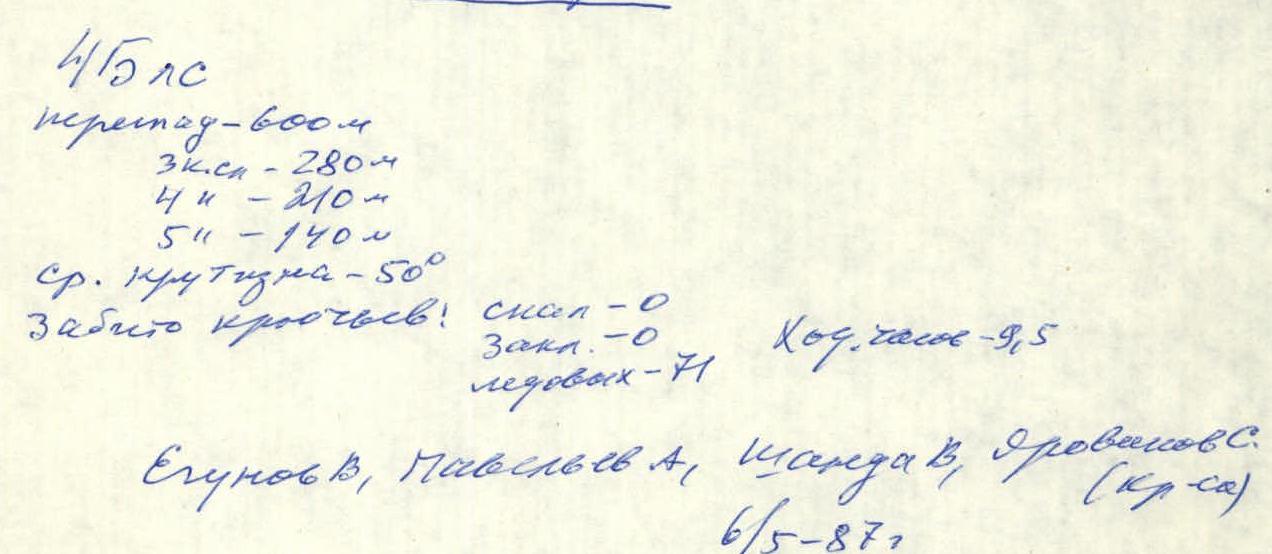 4Б лс
перепад - 600 м
3 к.сл - 280 м
4 " - 210 м
5 " - 140 м
ср. крутизна - 50°
Забито крючьев: скал - 0
закл. - 0
Ход. часов - 9,5
ледовых - 71
Егунов В, Савельев А, Шанда В,
(кр-са)
6/5-87 г